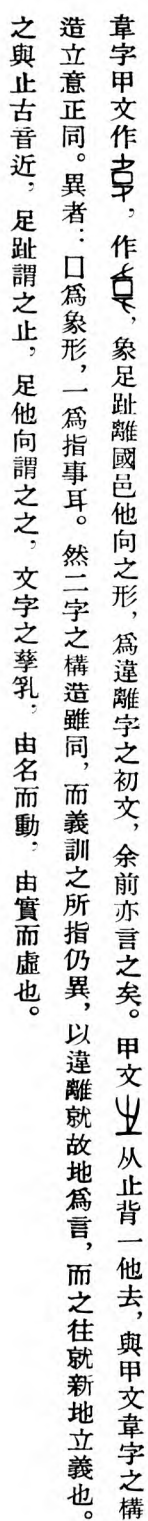 韋字甲文作，作，象足趾離國邑他向之形，爲違離字之初文，余前亦言之矣。甲文从止背一他去，與甲文韋字之構
造立意正同。異者：囗爲象形，一爲指事耳。然二字之構造雖同，而義訓之所指仍異，以違離就故地爲言，而之往就新地立義也。
之與止古音近，足趾謂之止，足他向謂之之，文字之孳乳，由名而動，由實而虛也。